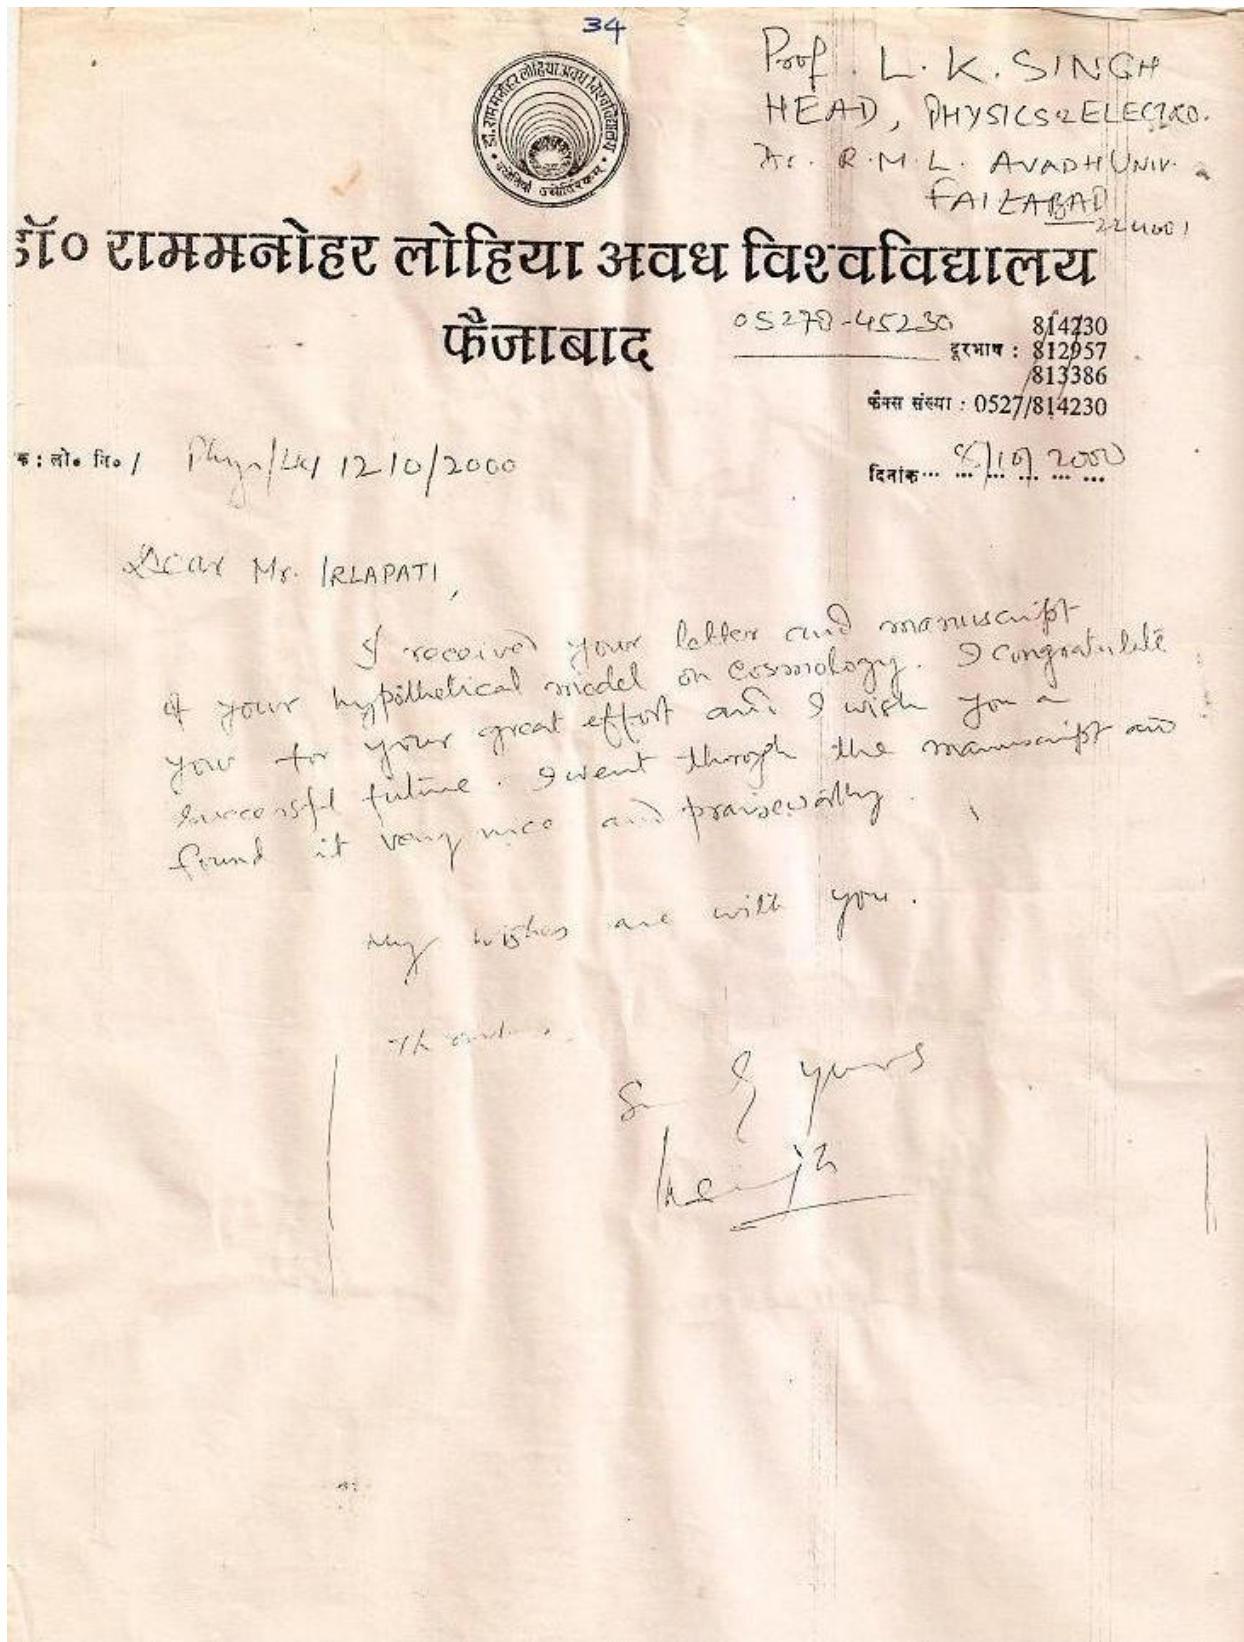 34
Prof. L. K. SINGH
HEAD, PHYSICS & ELECTRO.
Dr. R. M. L. AVADH UNIV.
FAIZABAD
224001
डा. राम मनोहर लोहिया अवध विश्वविद्यालय
डॉ० राममनोहर लोहिया अवध विश्वविद्यालय
फैजाबाद
05278-45230
814230
दूरभाष : 812957
813386
फैक्स संख्या : 0527/814230
क : लो० नि० / 1210/2000
दिनांक 8/10/2000
Dear Mr. IRLAPATI,
I received your letter and manuscript
of your hypothetical model on cosmology. I congratulate
you for your great effort and I wish you a
successful future. I went through the manuscript and
found it very nice and praiseworthy.
My wishes are with you.
yours